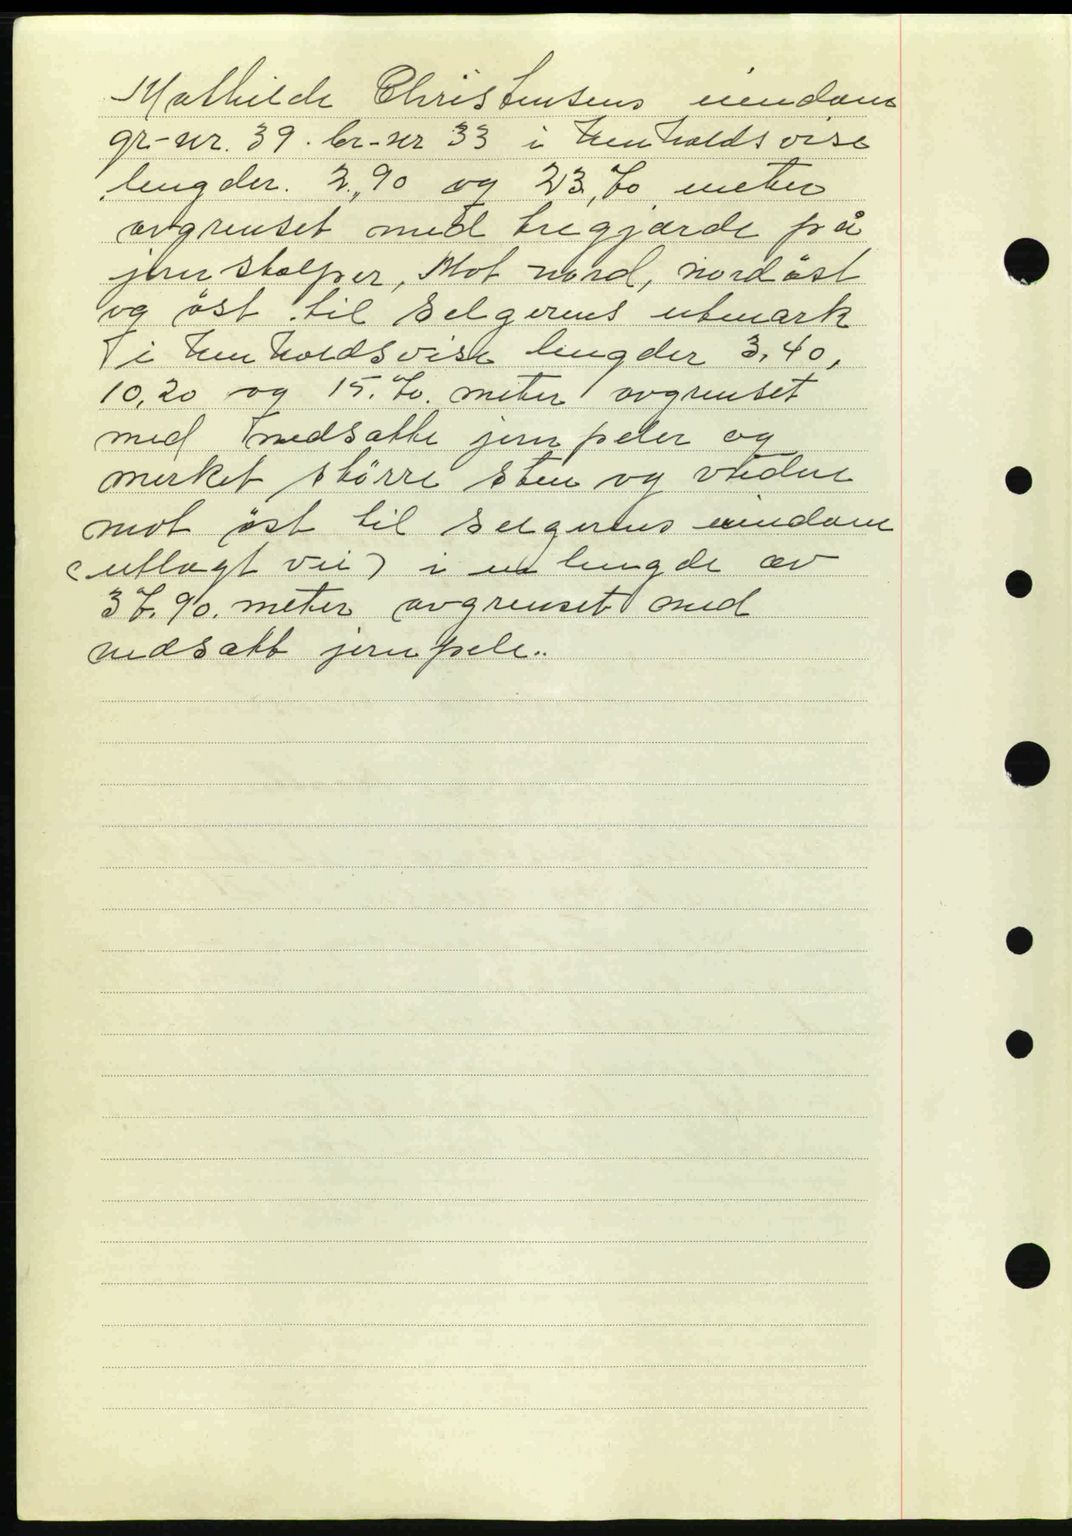 Mathilde Christensens eiendom
gr-nr. 39. br-nr 33 i henholdsvise
lengder. 2,90 og 23,70 meter
avgrenset med tregjærde på
jernstolper, Mot nord, nordöst
og öst til selgerens utmark
i henholdsvise lengder 3,40,
10,20 og 15.70. meter avgrenset
med nedsatte jernpeler og
merket större sten og videre
mot öst til selgerens eiendom
(utlagt vei) i en lengde av
37.90. meter avgrenset med
nedsatt jernpele..